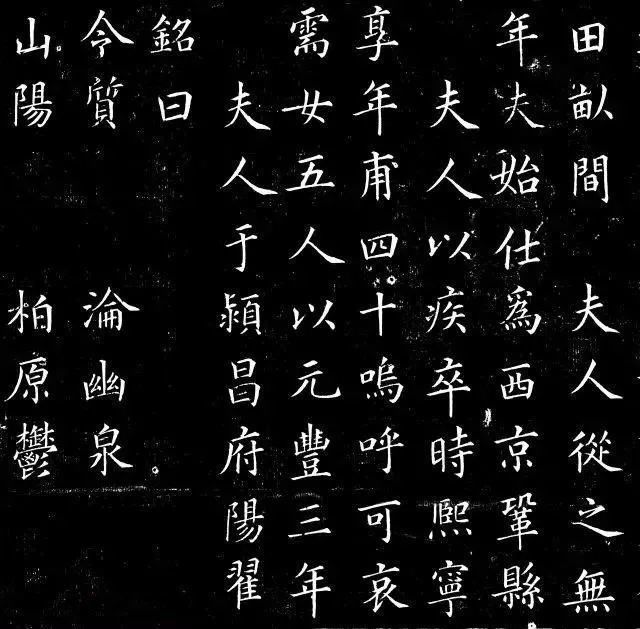 田畝間　夫人從之無
年夫始仕爲西京鞏縣
夫人以疾卒時熙寧
享年甫四十嗚呼可哀
需女五人以元豐三年
夫人于潁昌府陽翟
銘曰
令質　淪幽泉
山陽　柏原鬱